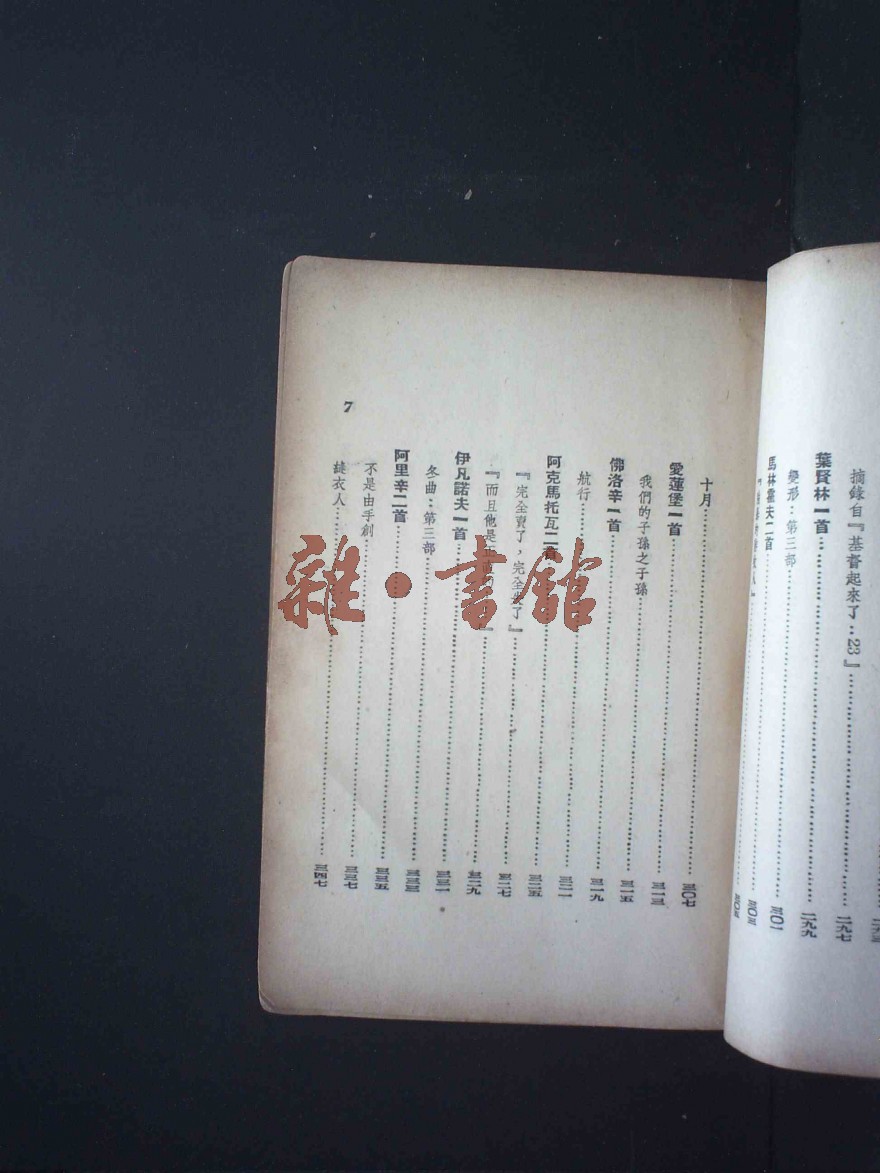 摘錄自『基督起來了：23』……二九七
葉賢林一首……二九九
變形：第三部……三〇一
馬林霍夫二首……三〇三
十月……三〇七
愛蓮堡一首……三一三
我們的子孫之子孫……三一五
佛洛辛一首……三一九
航行……三二一
阿克馬托瓦二首……三二五
『完全賣了，完全失了』……三二七
『而且他是』……三二九
伊凡諾夫一首……三三一
冬曲：第三部……三三三
阿里辛二首……三三五
不是由手創……三三七
縫衣人……三四七
7
雜·書館